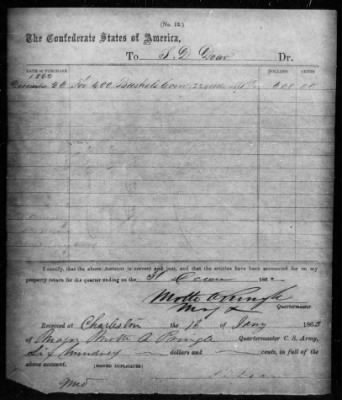 (No. 12.)
The Confederate States of America,
To S. D. Doar Dr.
DATE OF PURCHASE. DOLLARS. CENTS.
1862
December 20 For 400 Bushels Corn 600 00
I certify, that the above account is correct and just, and that the articles have been accounted for on my
property return for the quarter ending on the 31 186
Motte A Pringle
Maj &
Quartermaster
Received at Charleston the 16 of Jany 1863
of Major Motte A Pringle Quartermaster C. S. Army,
Six Hundred dollars and cents, in full of the
above account. (SIGNED DUPLICATES)